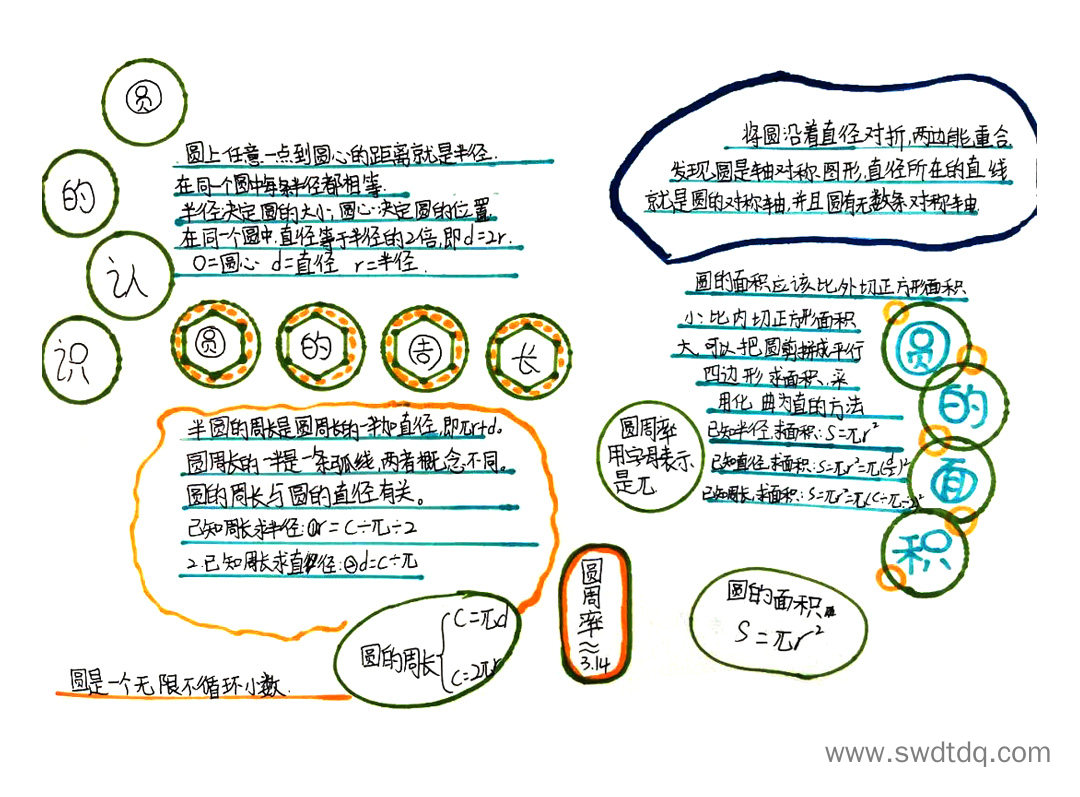 圆
的
认
识
圆上任意一点到圆心的距离就是半径.
在同一个圆中每条半径都相等.
半径决定圆的大小,圆心决定圆的位置
在同一个圆中,直径等于半径的2倍,即d=2r.
O=圆心 d=直径 r=半径.
圆 的 周 长
半圆的周长是圆周长的一半加直径,即πr+d。
圆周长的一半是一条弧线,两者概念不同。
圆的周长与圆的直径有关。
已知周长求半径:①r=C÷π÷2
2.已知周长求直径:②d=C÷π
圆的周长
C=πd
C=2πr
圆是一个无限不循环小数.
圆周率≈3.14
将圆沿着直径对折,两边能重合
发现圆是轴对称图形,直径所在的直线
就是圆的对称轴,并且圆有无数条对称轴
圆的面积应该比外切正方形面积
小,比内切正方形面积
大,可以把圆剪拼成平行
四边形求面积,采
用化曲为直的方法
已知半径,求面积:S=πr²
已知直径,求面积:S=πr²=π(d/2)²
已知周长,求面积:S=πr²=π(C÷π÷2)²
圆周率
用字母表示
是π
圆
的
面
积
圆的面积
S=πr²
www.swdtdq.com